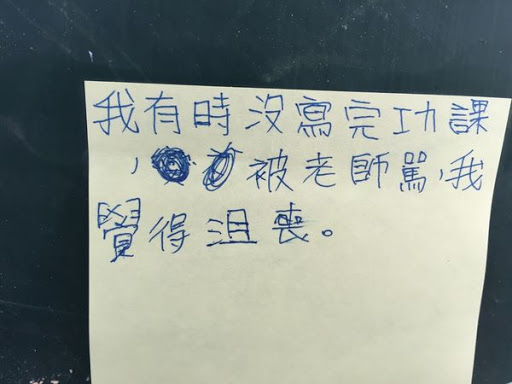 我有時沒寫完功課
，被老師罵，我
覺得沮喪。